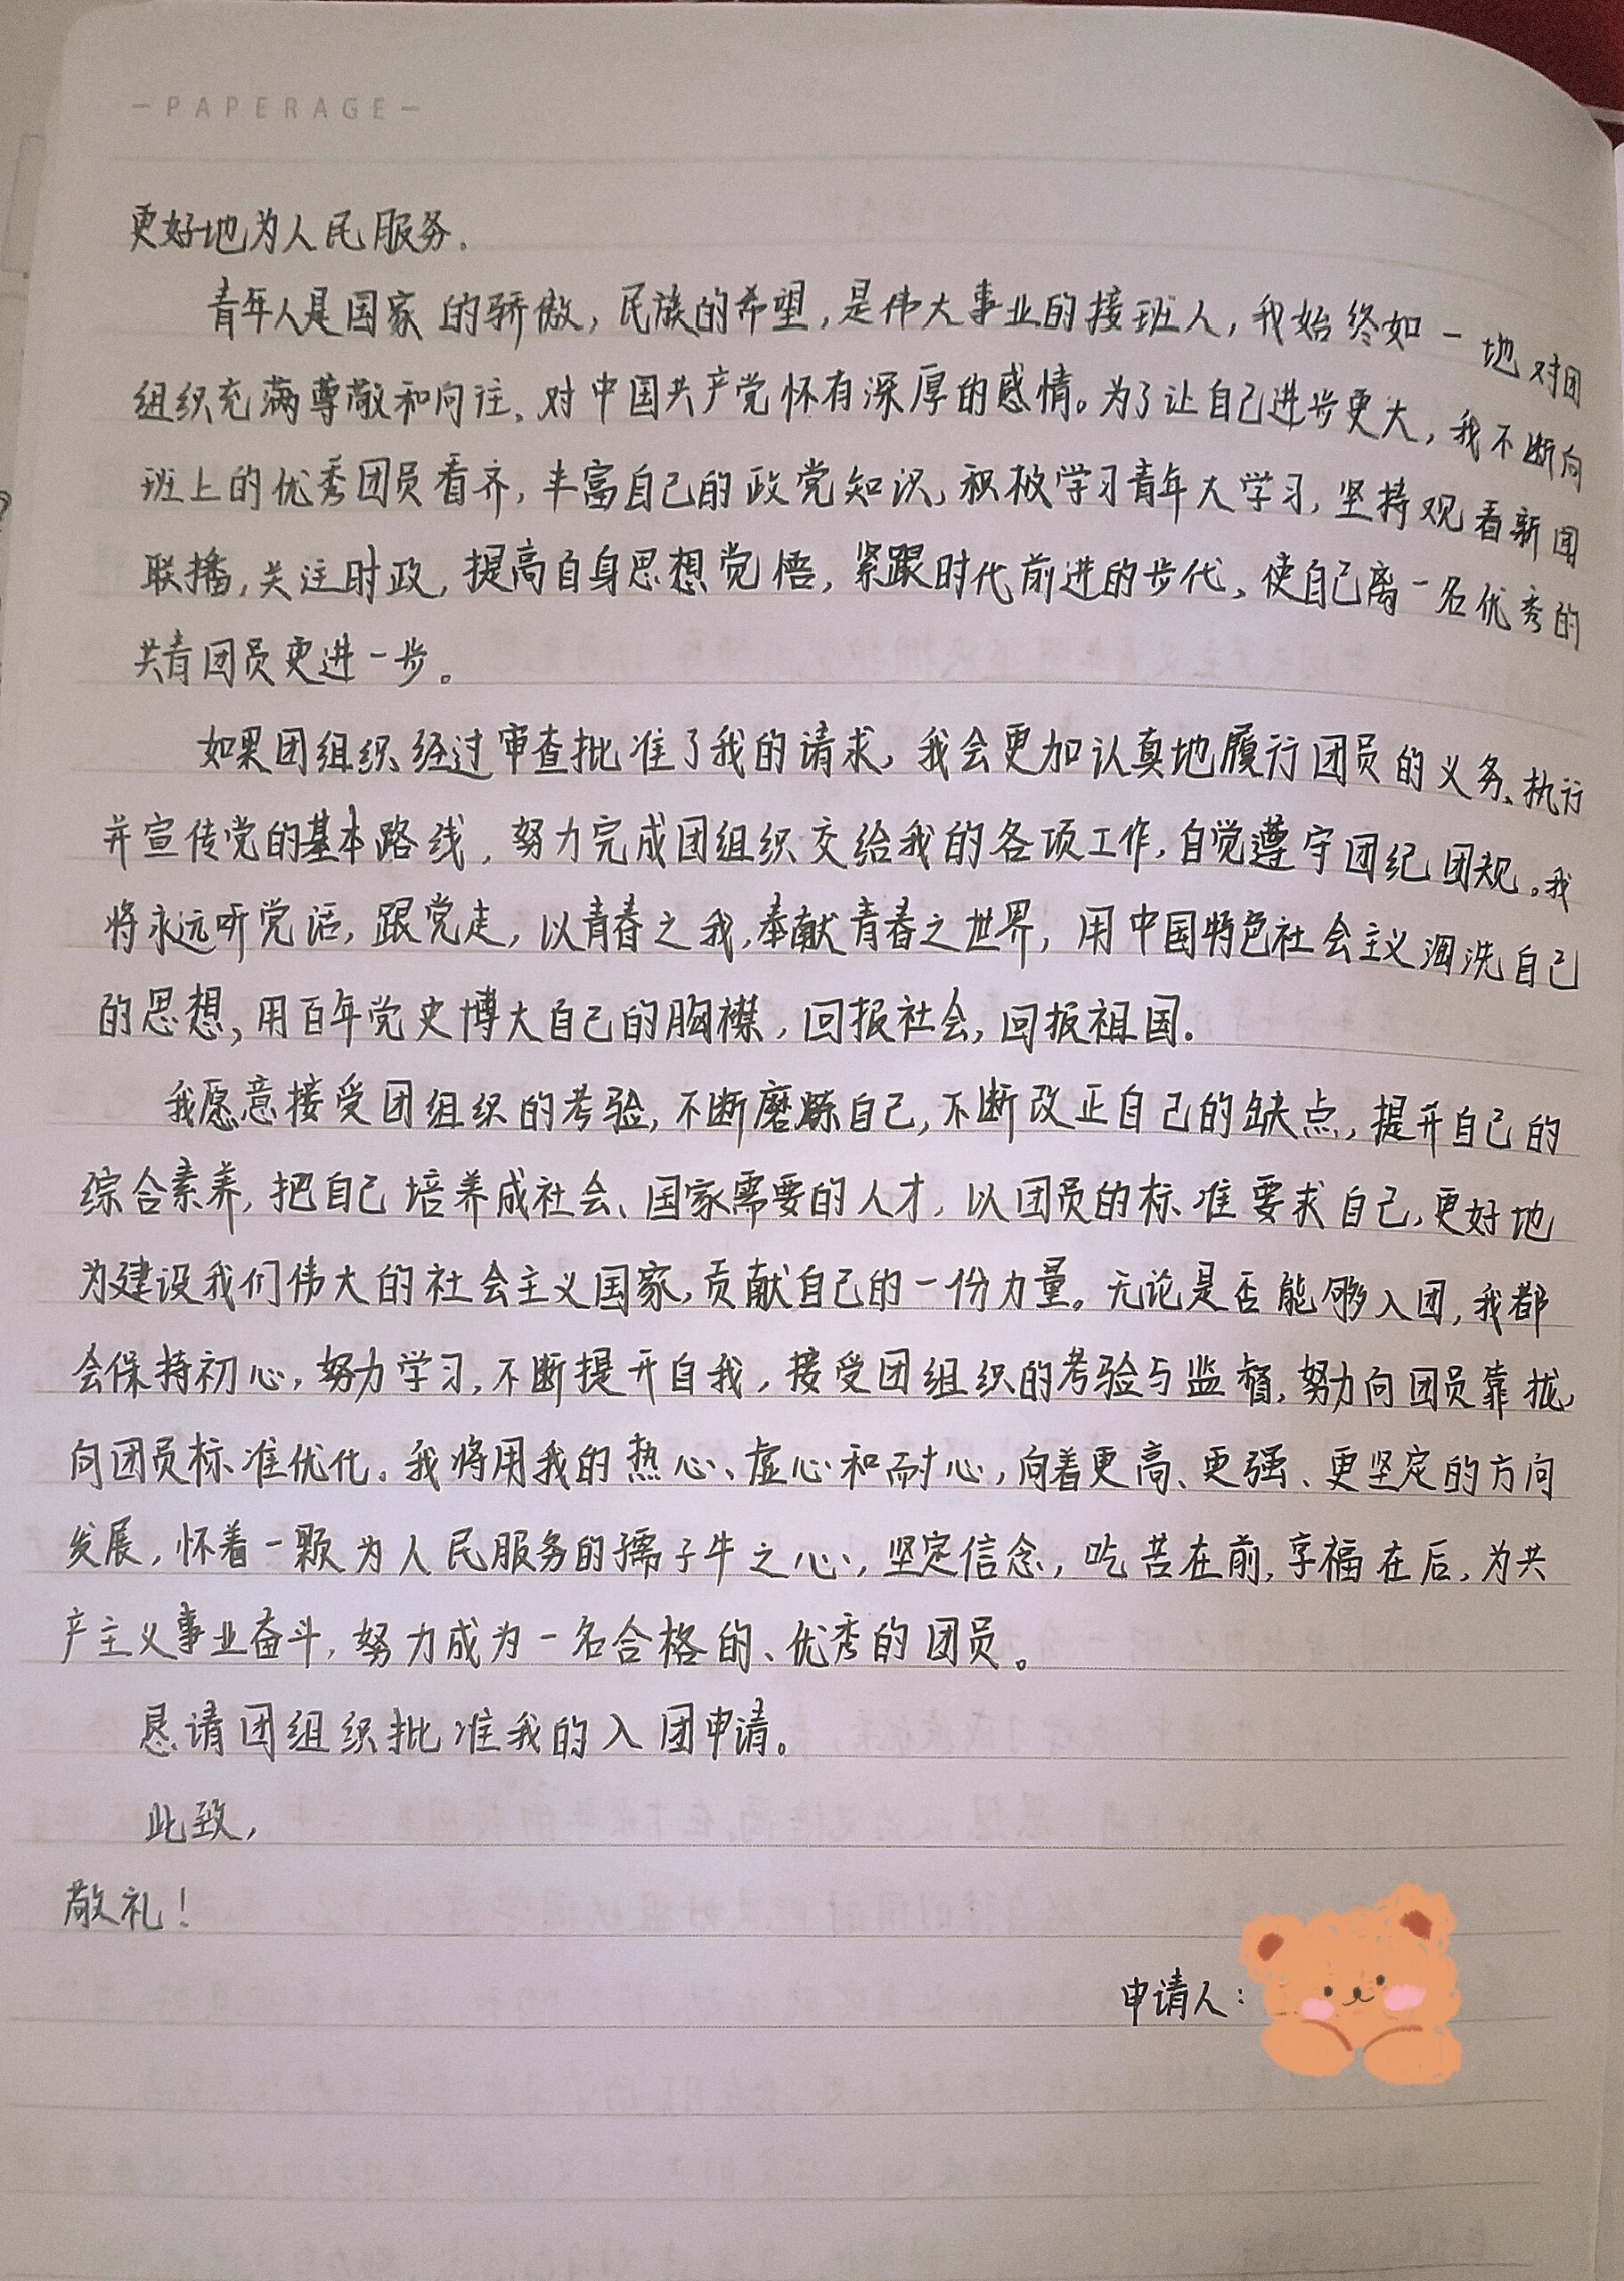 -PAPERAGE-
更好地为人民服务.
青年人是国家的骄傲,民族的希望,是伟大事业的接班人,我始终如一地对团
组织充满尊敬和向往、对中国共产党怀有深厚的感情。为了让自己进步更大,我不断向
班上的优秀团员看齐,丰富自己的政党知识,积极学习青年大学习,坚持观看新闻
联播,关注时政,提高自身思想觉悟,紧跟时代前进的步代、使自己离一名优秀的
共青团员更进一步。
如果团组织经过审查批准了我的请求,我会更加认真地履行团员的义务、执行
并宣传党的基本路线,努力完成团组织交给我的各项工作,自觉遵守团纪团规。我
将永远听党话,跟党走,以青春之我,奉献青春之世界,用中国特色社会主义洗自己
的思想,用百年党史博大自己的胸襟,回报社会,回报祖国.
我愿意接受团组织的考验,不断磨炼自己,不断改正自己的缺点,提升自己的
综合素养,把自己培养成社会、国家需要的人才,以团员的标准要求自己,更好地
为建设我们伟大的社会主义国家,贡献自己的一份力量。无论是否能够入团,我都
会保持初心,努力学习,不断提升自我,接受团组织的考验与监督,努力向团员靠拢,
向团员标准优化。我将用我的热心、虚心和耐心,向着更高、更强、更坚定的方向
发展,怀着一颗为人民服务的孺子牛之心,坚定信念,吃苦在前,享福在后,为共
产主义事业奋斗,努力成为一名合格的、优秀的团员。
恳请团组织批准我的入团申请。
此致,
敬礼!
申请人: